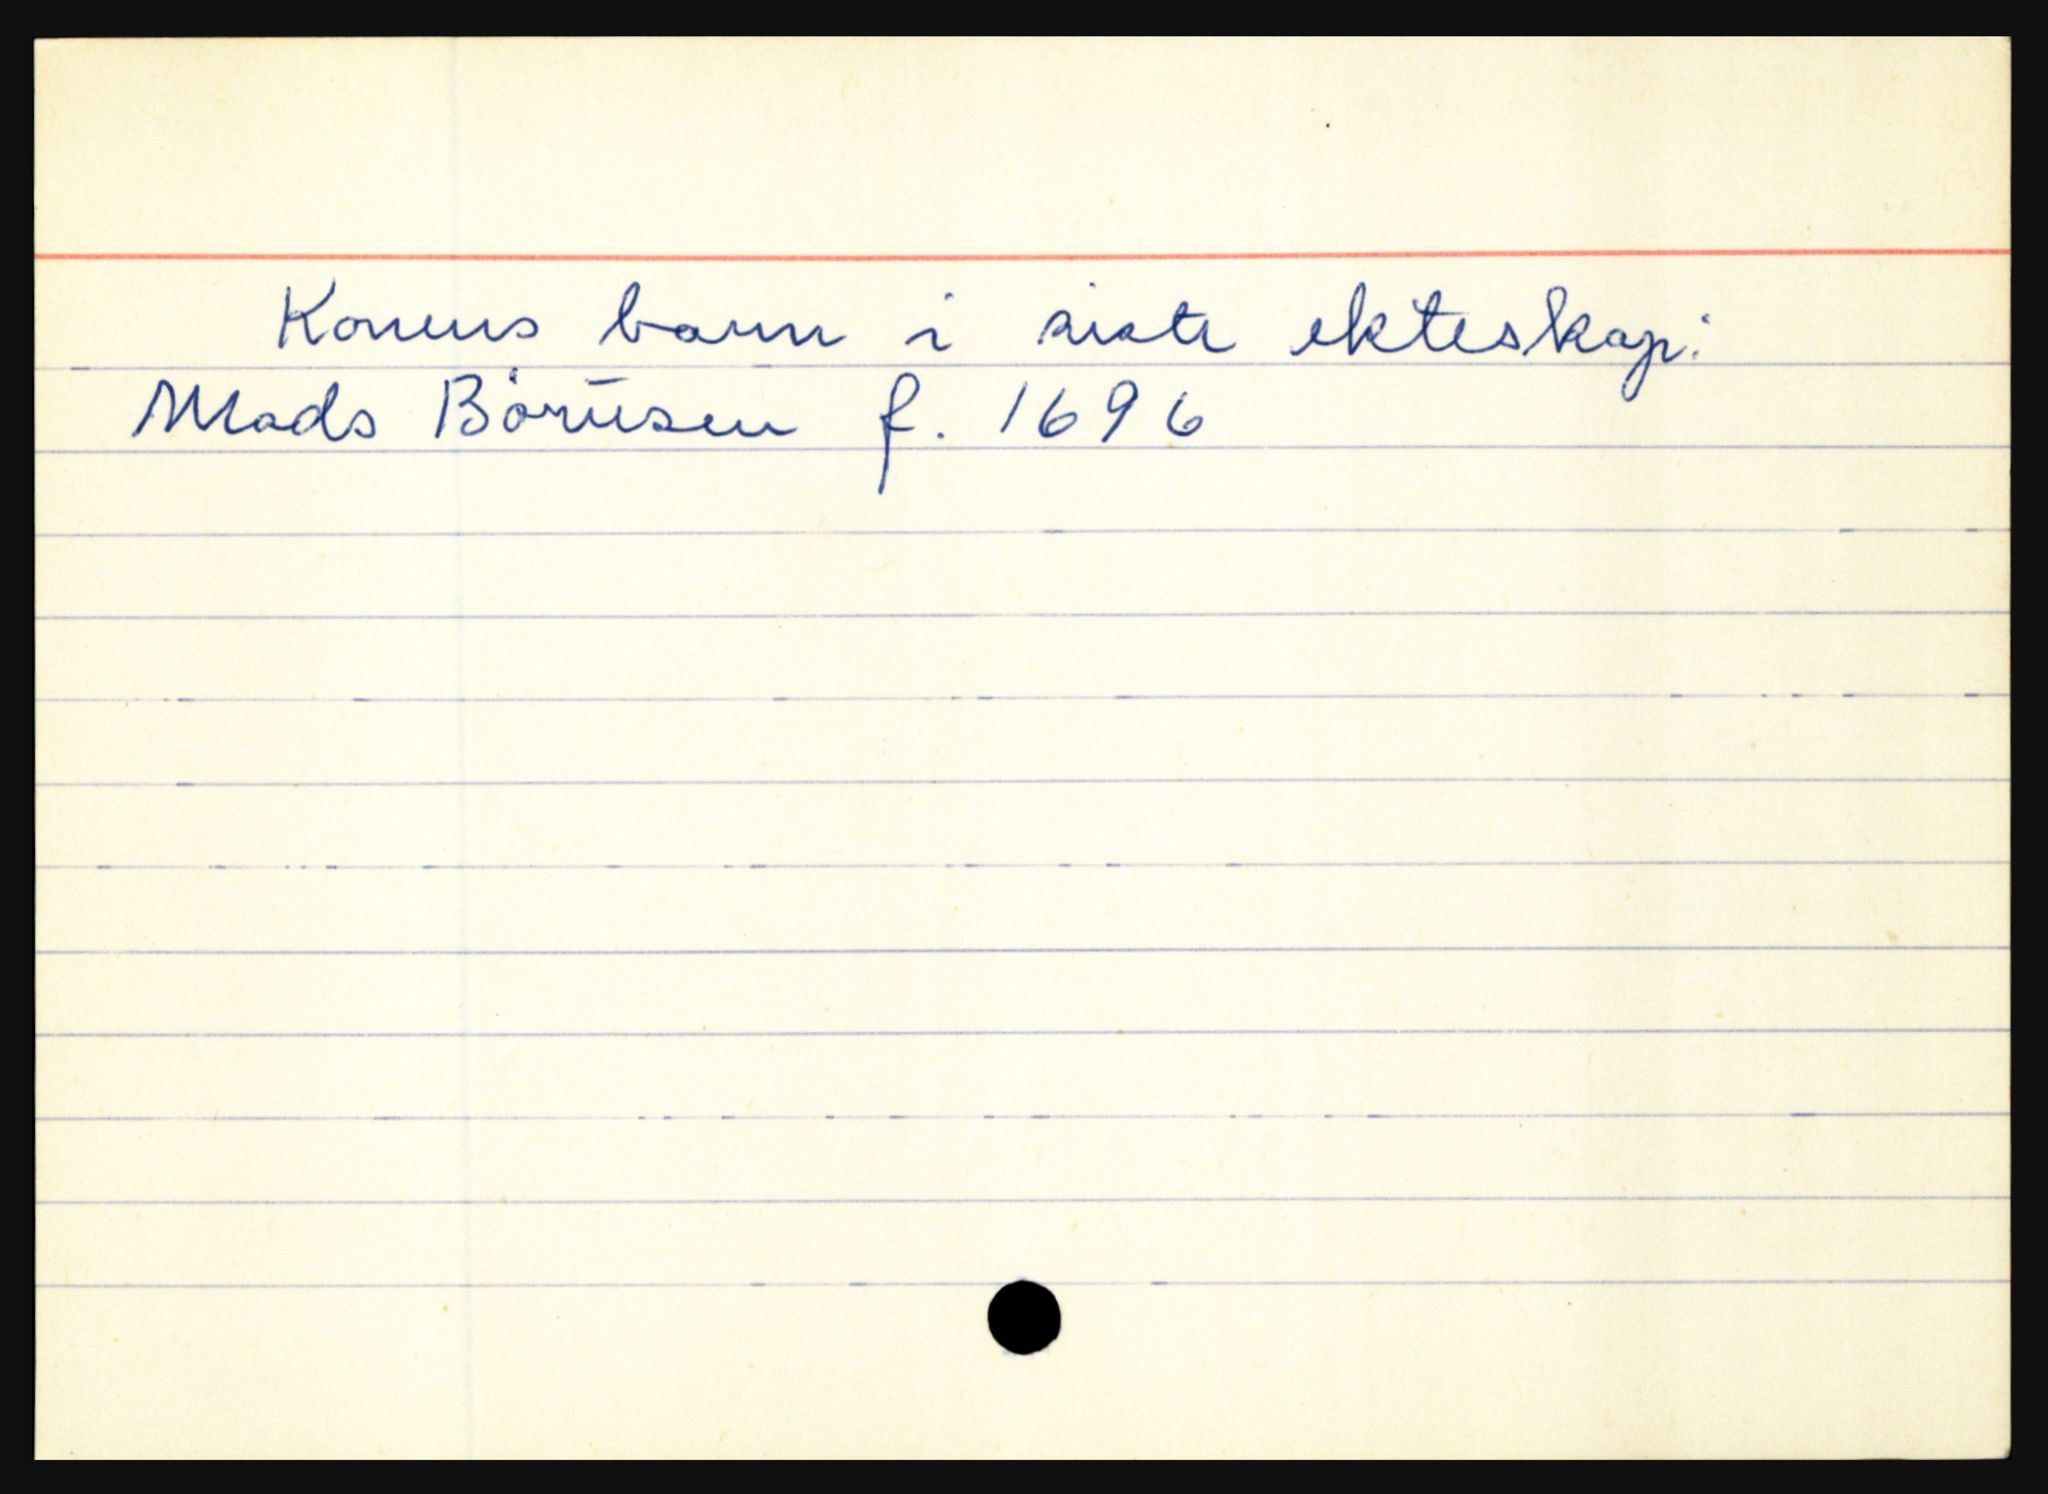 Konens barn i siste ekteskap:
Mads Børresen f. 1696